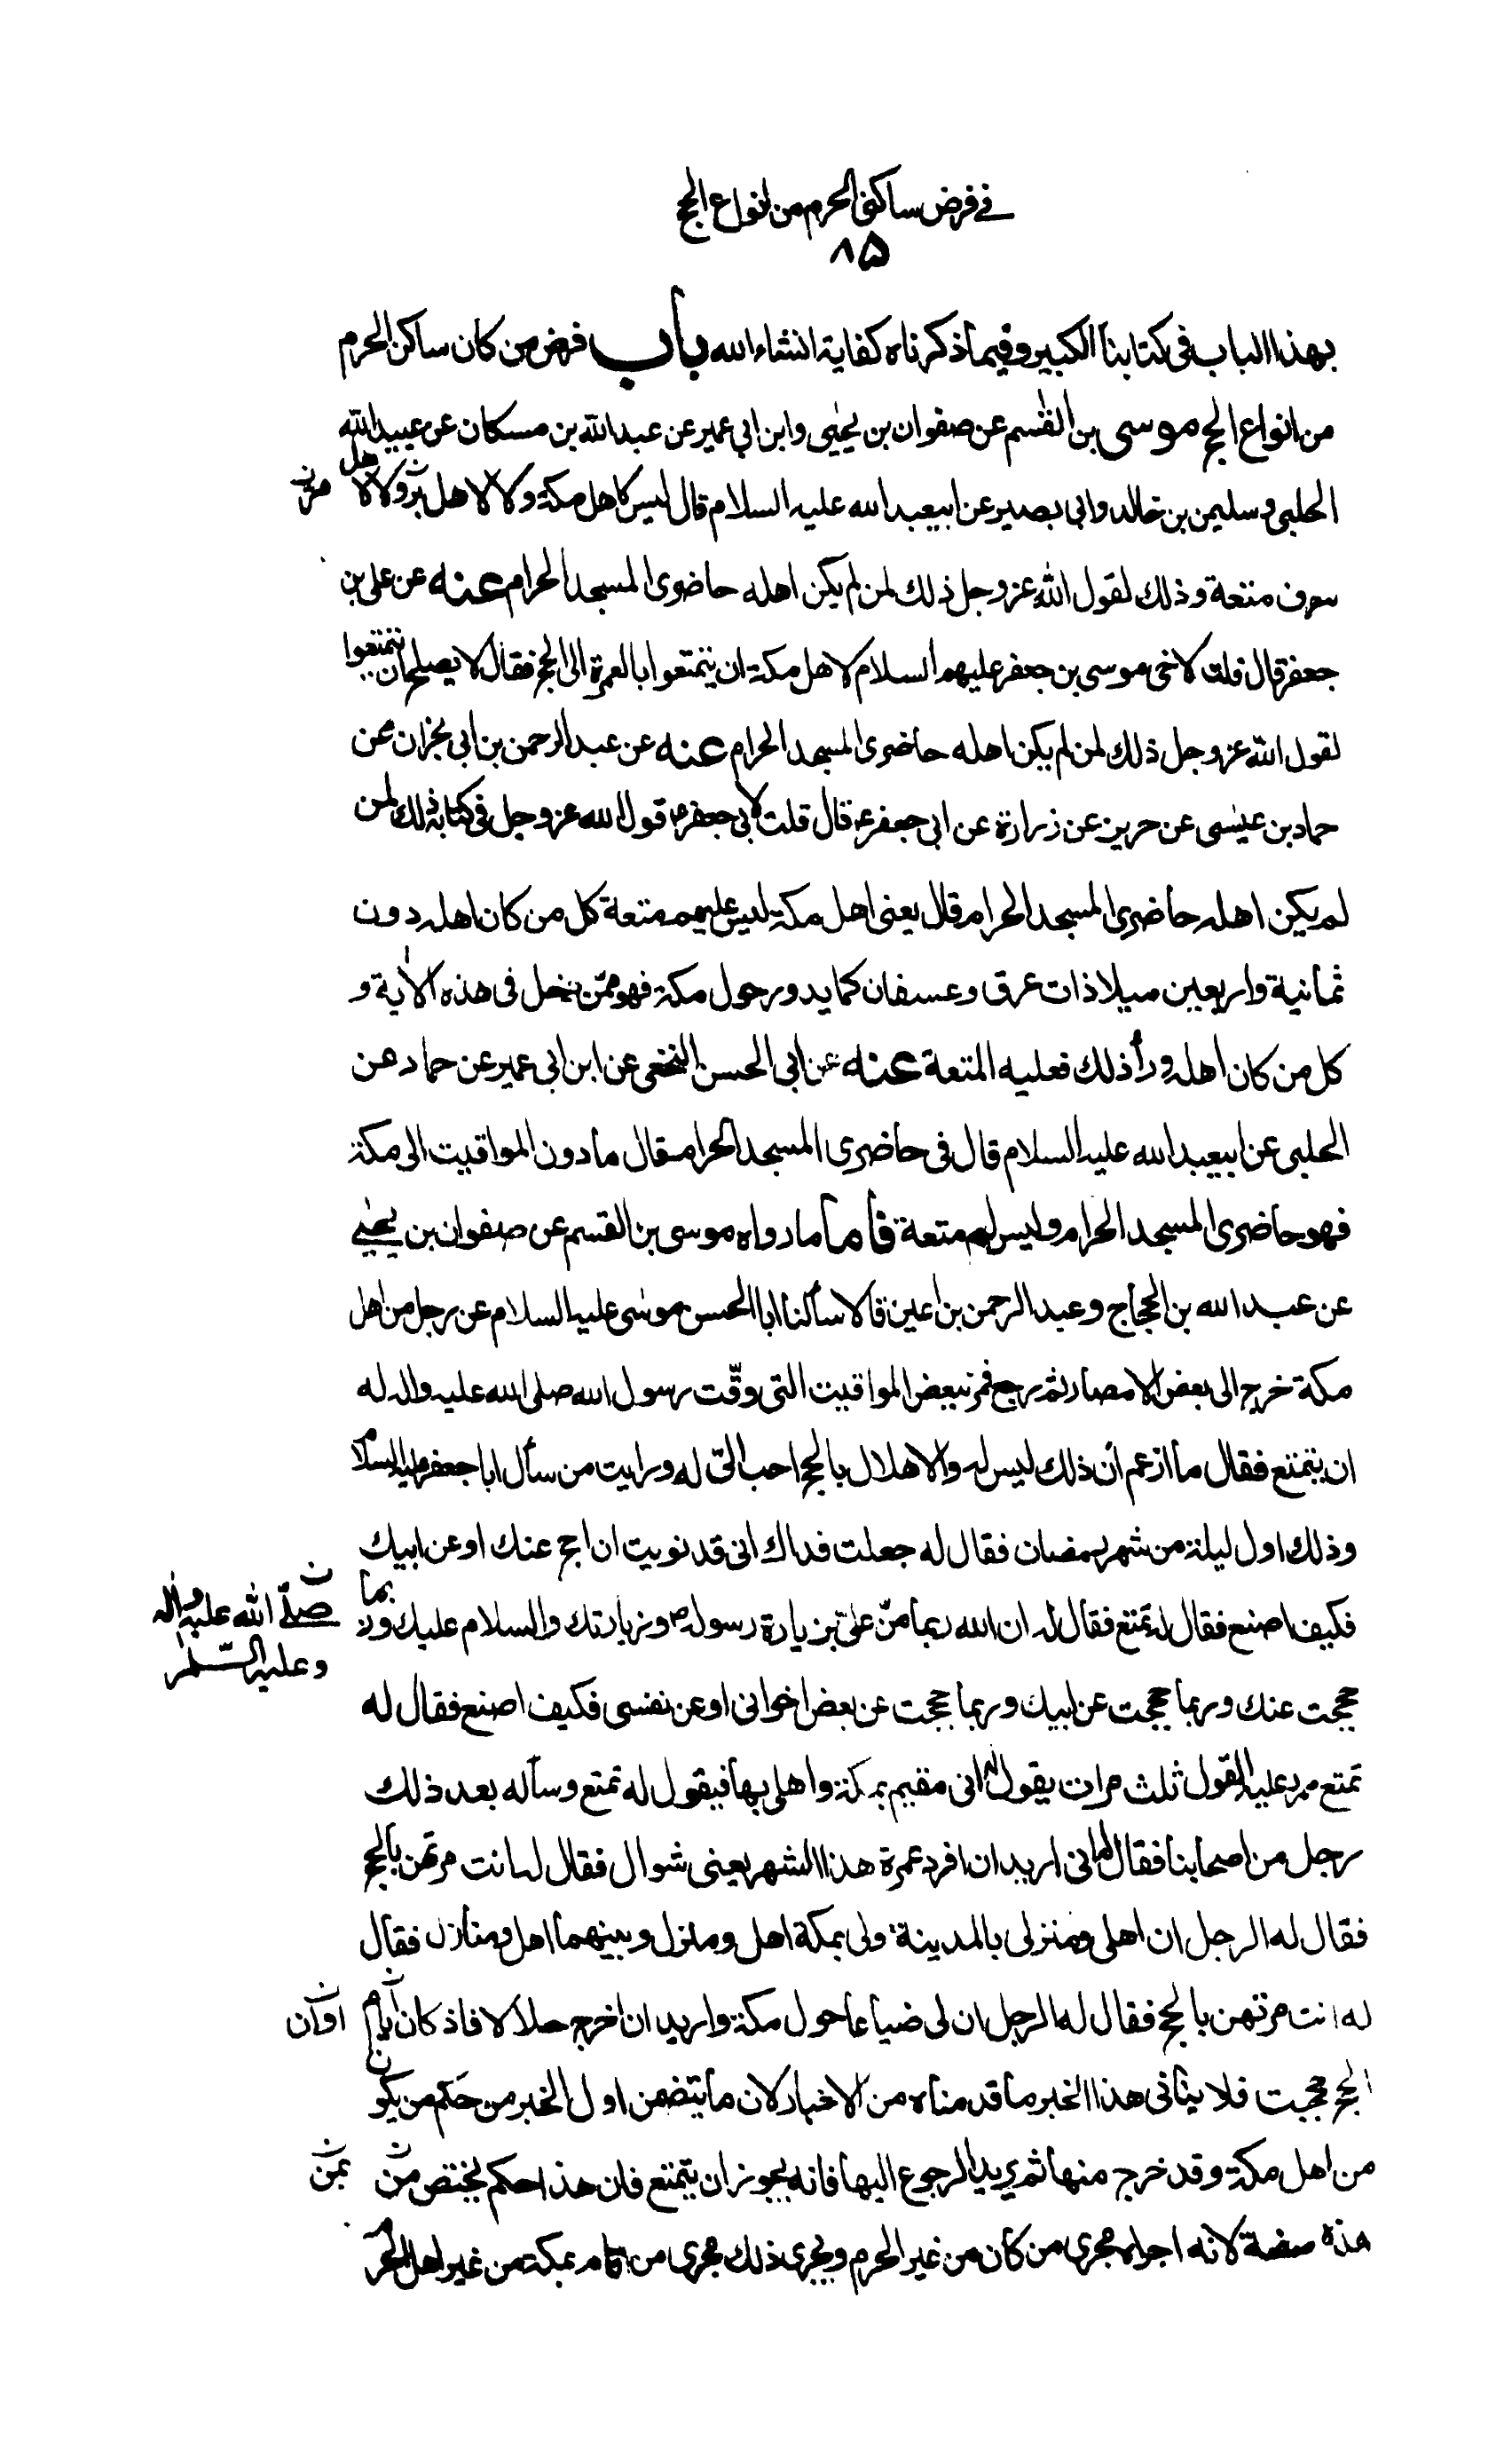 في فرض ساكنى الحرم من انواع الحج
٨۵
بهذا الباب فى كتابنا الكبير وفيما ذكرناه كفاية انشاء الله باب فرض من كان ساكن الحرم
من انواع الحج موسى بن القسم عن صفوان بن يحيى وابن ابى عمير عن عبد الله بن مسكان عن عبيد الله
الحلبى وسليمن بن خالد وابى بصير عن ابيعبد الله عليه السلام قال ليس لاهل مكة ولا لاهل مر ولا لاهل
مر ن
سرف متعة وذلك لقول الله عز وجل ذلك لمن لم يكن اهله حاضرى المسجد الحرام عنه عن على بن
جعفر قال قلت لاخى موسى بن جعفر عليهم السلام لاهل مكة ان يتمتعوا بالعمرة الى الحج فقال لا يصلح ان يتمتعوا
لقول الله عز وجل ذلك لمن لم يكن اهله حاضرى المسجد الحرام عنه عن عبد الرحمن بن ابى نجران عن
حماد بن عيسى عن حريز عن زرارة عن ابى جعفر ع قال قلت لابى جعفر ع قول الله عز وجل فى كتابه ذلك لمن
لم يكن اهله حاضرى المسجد الحرام قال يعنى اهل مكة ليس عليهم متعة كل من كان اهله دون
ثمانية واربعين ميلا ذات عرق وعسفان كما يدور حول مكة فهو ممّن دخل فى هذه الاية و
كل من كان اهله وراء ذلك فعليه المتعة عنه عن ابى الحسن النخعى عن ابن ابى عمير عن حماد عن
الحلبى عن ابيعبد الله عليه السلام قال فى حاضرى المسجد الحرام قال ما دون المواقيت الى مكة
فهو حاضرى المسجد الحرام وليس لهم متعة فأما ما رواه موسى بن القسم عن صفوان بن يحيى
عن عبد الله بن الحجاج وعبد الرحمن بن اعين قالا سألنا ابا الحسن موسى عليه السلام عن رجل من اهل
مكة خرج الى بعض الامصار ثم رجع فمر ببعض المواقيت التى وقّت رسول الله صلى الله عليه واله له
ان يتمتع فقال ما ازعم أن ذلك ليس له والاهلال بالحج احب الىّ له ورايت من سأل ابا جعفر عليه السلام
وذلك اول ليلة من شهر رمضان فقال له جعلت فداك انى قد نويت ان احج عنك او عن ابيك
فكيف اصنع فقال له تمتع فقال له ان الله ربما منّ علىّ بزيارة رسوله ص وزيارتك والسلام عليك وربما
ن صلّى الله عليه واله
وعليه السّلم
حججت عنك وربما حججت عن ابيك وربما حججت عن بعض اخوانى او عن نفسى فكيف اصنع فقال له
تمتع فرد عليه القول ثلث مرات يقول له انى مقيم بمكة واهلى بها فيقول له تمتع وسأله بعد ذلك
رجل من اصحابنا فقال له انى اريد ان افرد عمرة هذا الشهر يعنى شوال فقال له انت مرتهن بالحج
فقال له الرجل ان اهلى ومنزلى بالمدينة ولى بمكة اهل ومنزل وبينهما اهل ومنازل فقال
له انت مرتهن بالحج فقال له الرجل ان لى ضياعا حول مكة واريد ان اخرج حلالا فاذ كان ايام
اوان ن
الحج حججت فلا ينافى هذا الخبر ما قدمناه من الاخبار لان ما يتضمن اول الخبر من حكم من يكون
من اهل مكة وقد خرج منها ثم يريد الرجوع اليها فانه يجوز ان يتمتع فان هذا حكم يختص من
بمن ن
هذه صفة لانه اجراه مجرى من كان من غير الحرم ويجرى ذلك مجرى من اقام بمكة من غير اهل الحرم